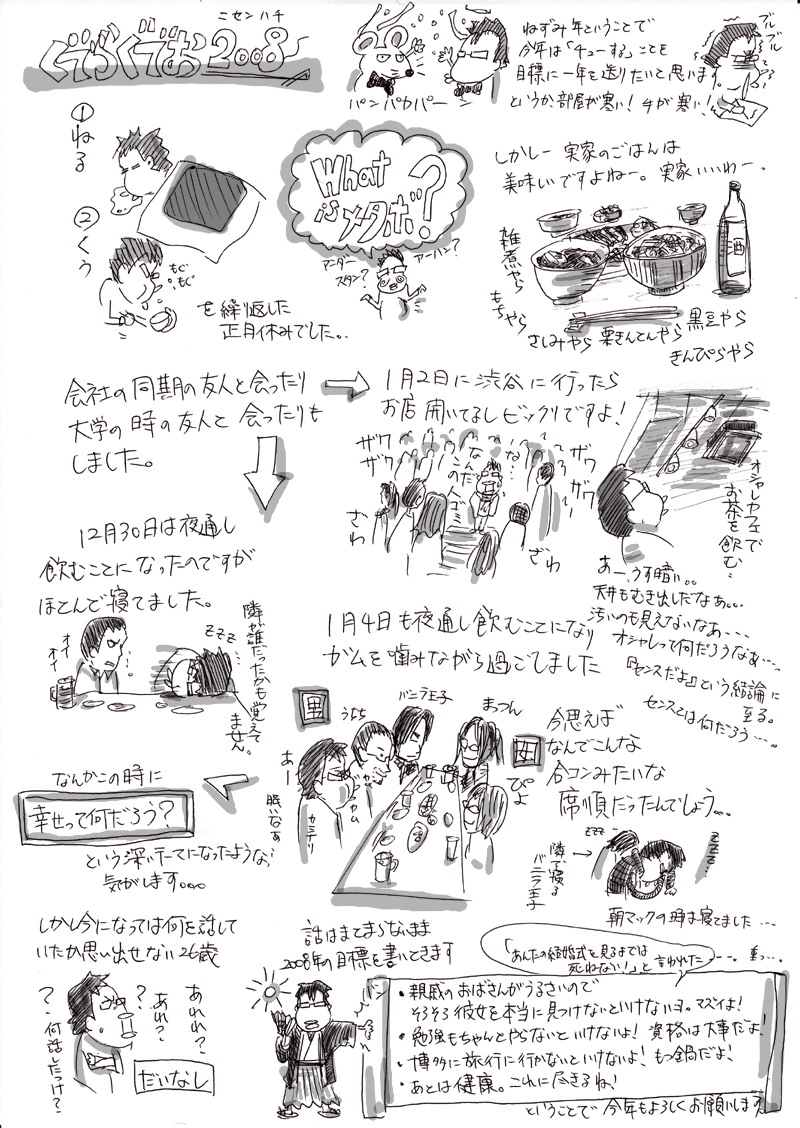 ニセンハチ
ぐだぐだお2008
パンパカパーン
ねずみ年ということで
今年は「チューする」ことを
目標に一年を送りたいと思います。
というか、部屋が寒い！手が寒い！
ブルブル
①ねる
②くう
もぐもぐ
を繰り返した
正月休みでした。
What
is
メタボ?
アンダースタン？
アーハン？
しかしー 実家のごはんは
美味いですよねー。実家いいわー。
酒
雑煮やら
もちやら
さしみやら
栗きんとんやら
黒豆やら
きんぴらやら
会社の同期の友人と会ったり
大学の時の友人と会ったりも
しました。
1月2日に渋谷に行ったら
お店開いてるしビックリですよ！
ザワザワ
なんだこの人ゴミは…
ザワザワ
ざわ
ざわ
オシャレカフェで
お茶を飲む…
あー、うす暗い。。
天井もむき出しだなあ。。。
汚いのも見えないなあ・・・
オシャレって何だろうなあ・・・。
『センスだよ』という結論に
至る。
センスとは何だろう・・・。
12月30日は夜通し
飲むことになったのですが
ほとんど寝てました。
オイオイ
ZZZ
隣が誰だったかも覚えて
ません。
1月4日も夜通し飲むことになり
ガムを噛みながら過ごしました
男
うらら
バニラ王子
まっつん
女
ぴよ
あー
眠いなぁ
カミナリ
今思えば
なんでこんな
合コンみたいな
席順だったんでしょう。。
ZZZ
ZZZ
隣で寝る
バニラ王子
朝マックの時は寝てました・・・
なんかこの時に
幸せって何だろう？
という深いテーマになったような
気がします。。。
しかし今になっては何を話して
いたか思い出せない26歳
？
？
？
あれれ？
あれ？
何話したっけ？
だいなし
話はまとまらないまま
2008年の目標を書いときます
「あんたの結婚式を見るまでは
死ねない！」と言われたー。重っ…。
バン
・親戚のおばさんがうるさいので
そろそろ彼女を本当に見つけないといけないヨ。マズイよ！
・勉強もちゃんとやらないといけないよ！資格は大事だよ！
・博多に旅行に行かないといけないよ！もつ鍋だよ！
・あとは健康。これに尽きるね！
ということで今年もよろしくお願いします